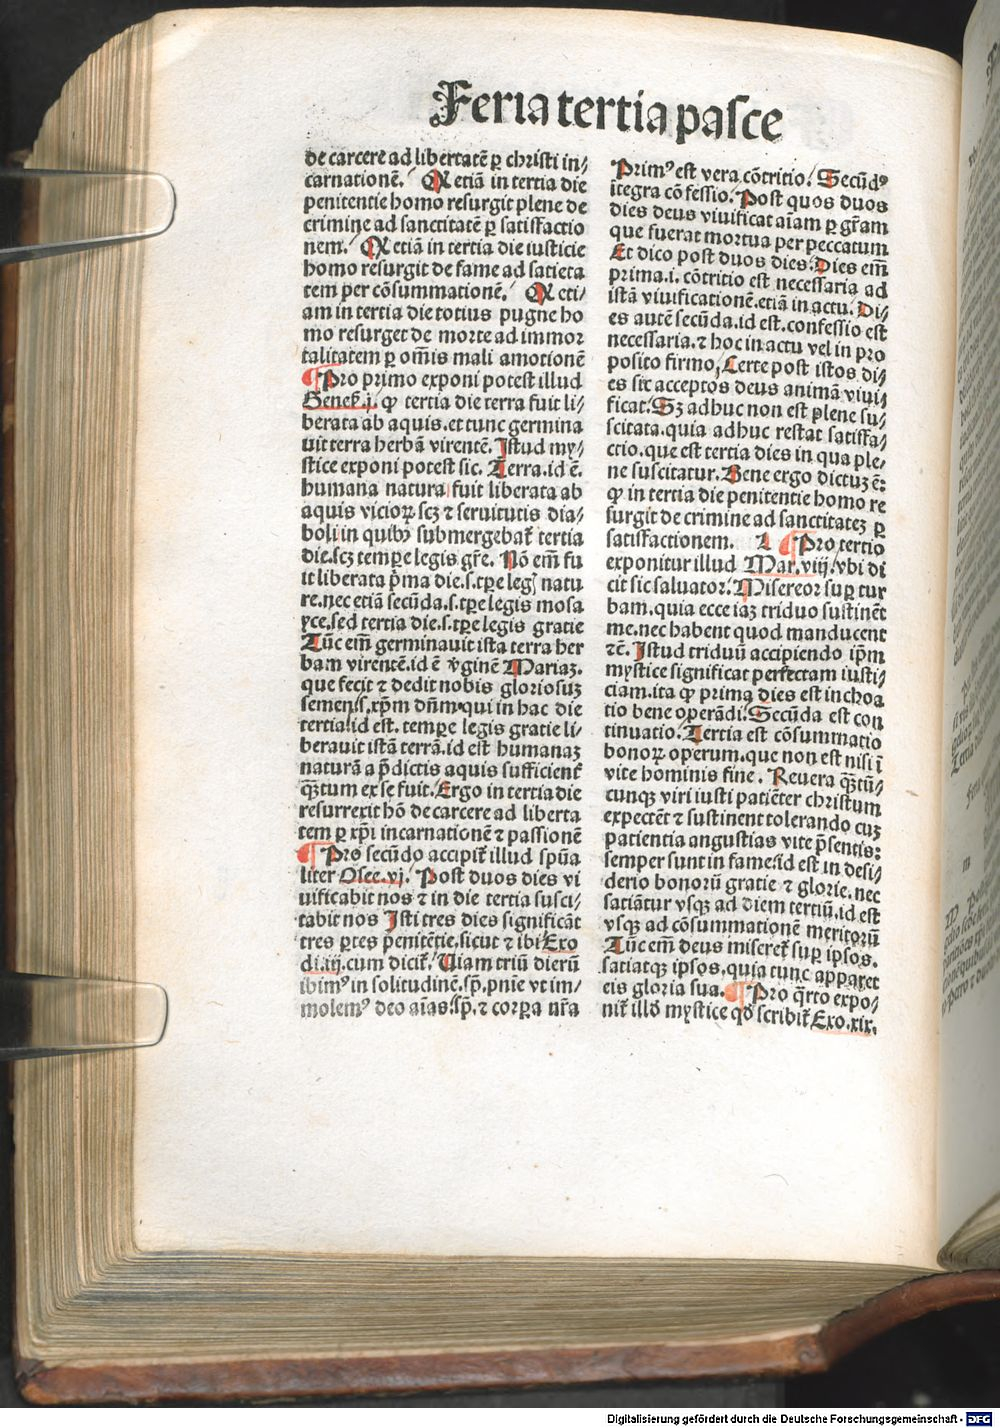 Feria tertia pasce
de carcere ad libertatē ꝑ christi in⸗
carnationē. Qꝫ etiā in tertia die
penitentie homo resurgit plene de
crimine ad sanctitatē ꝑ satisfactio
nem. Qꝫ etiā in tertia die iusticie
homo resurgit de fame ad satieta
tem per cōsummationē. Qꝫ eti⸗
am in tertia die totius pugne ho
mo resurget de morte ad immor
talitatem ꝑ om̄is mali amotionē
¶ Pro primo exponi potest illud
Geneſ.j. ꝙ tertia die terra fuit li⸗
berata ab aquis.et tunc germina
uit terra herbā virentē. Istud my⸗
stice exponi potest sic. Terra.id ē.
humana natura fuit liberata ab
aquis vicioꝝ scꝫ ⁊ seruitutis dia⸗
boli in quibꝰ submergebat᷑ tertia
die.scꝫ temꝑe legis gr̄e. Nō em̄ fu
it liberata p̄ma die.s.tꝑe leg[ natu
re.nec etiā secūda.s.tꝑe legis mosa
yce.sed tertia die.s.tꝑe legis gratie
Tūc em̄ germinauit ista terra her
bam virentē.id ē v̄ginē Mariaꝫ.
que fecit ⁊ dedit nobis gloriosuꝫ
semen.s.xp̄m dn̄m qui in hac die
tertia.id est. temꝑe legis gratie li⸗
berauit istā terrā.id est humanaꝫ
naturā a p̄dictis aquis sufficient᷑
qꝫ̄tum ex se fuit. Ergo in tertia die
resurrexit hō de carcere ad liberta
tem ꝑ xp̄i incarnationē ⁊ passionē
¶ Pro secūdo accipit᷑ illud spūa
liter Osee.vj. Post duos dies vi
uificabit nos ⁊ in die tertia susci⸗
tabit nos Isti tres dies significāt
tres ꝑtes penitētie.sicut ⁊ ibi Exo
di.iij.cum dicit᷑. Uiam triū dierū
ibimꝰ in solitudinē.sꝫ.pn̄ie vt im⸗
molemꝰ deo aīas.sꝫ.⁊ corꝑa nr̄a
Primꝰ est vera cōtritio. Secūdꝰ
itegra cōfessio. Post quos duos
dies deus viuificat aīam ꝑ gr̄am
que fuerat mortua per peccatum
Et dico post duos dies. Dies em̄
prima.i. cōtritio est necessaria ad
istā viuificationē.etiā in actu. Di⸗
es autē secūda.id est.confessio est
necessaria.⁊ hoc in actu vel in pro
posito firmo, Certe post istos di⸗
es sic acceptos deus animā viui⸗
ficat. Sꝫ adhuc non est plene su⸗
scitata.quia adhuc restat satisfa⸗
ctio.que est tertia dies in qua ple⸗
ne suscitatur. Bene ergo dictuꝫ ē:
ꝙ in tertia die penitentie homo re
surgit de crimine ad sanctitateꝫ ꝑ
satisfactionem. L ¶ Pro tertio
exponitur illud Mar.viij.vbi di
cit sic saluator. Misereor suꝑ tur
bam.quia ecce iaꝫ triduo sustinēt
me.nec habent quod manducent
⁊c̄. Istud triduū accipiendo ip̄m
mystice significat perfectam iusti⸗
ciam.ita ꝙ prima dies est inchoa
tio bene operādi. Secūda est con
tinuatio. Tertia est cōsummatio
bonoꝝ operum.que non est nisi ī
vite hominis fine. Reuera qꝫ̄tū⸗
cunqꝫ viri iusti patiēter christum
expectēt ⁊ sustinent tolerando cuꝫ
patientia angustias vite p̄sentis:
semper sunt in fame.id est in desi⸗
derio bonorū gratie ⁊ glorie. nec
satiātur vsqꝫ ad diem tertiū.id est
vsqꝫ ad cōsummationē meritorū
Tūc em̄ deus miseret᷑ suꝑ ipsos.
satiatqꝫ ipsos.quia tunc apparet
eis gloria sua. ¶ Pro q̄rto expo⸗
nit᷑ illd̄ mystice qd̄ scribit᷑ Exo.xix.
Digitalisierung gefördert durch die Deutsche Forschungsgemeinschaft - DFG